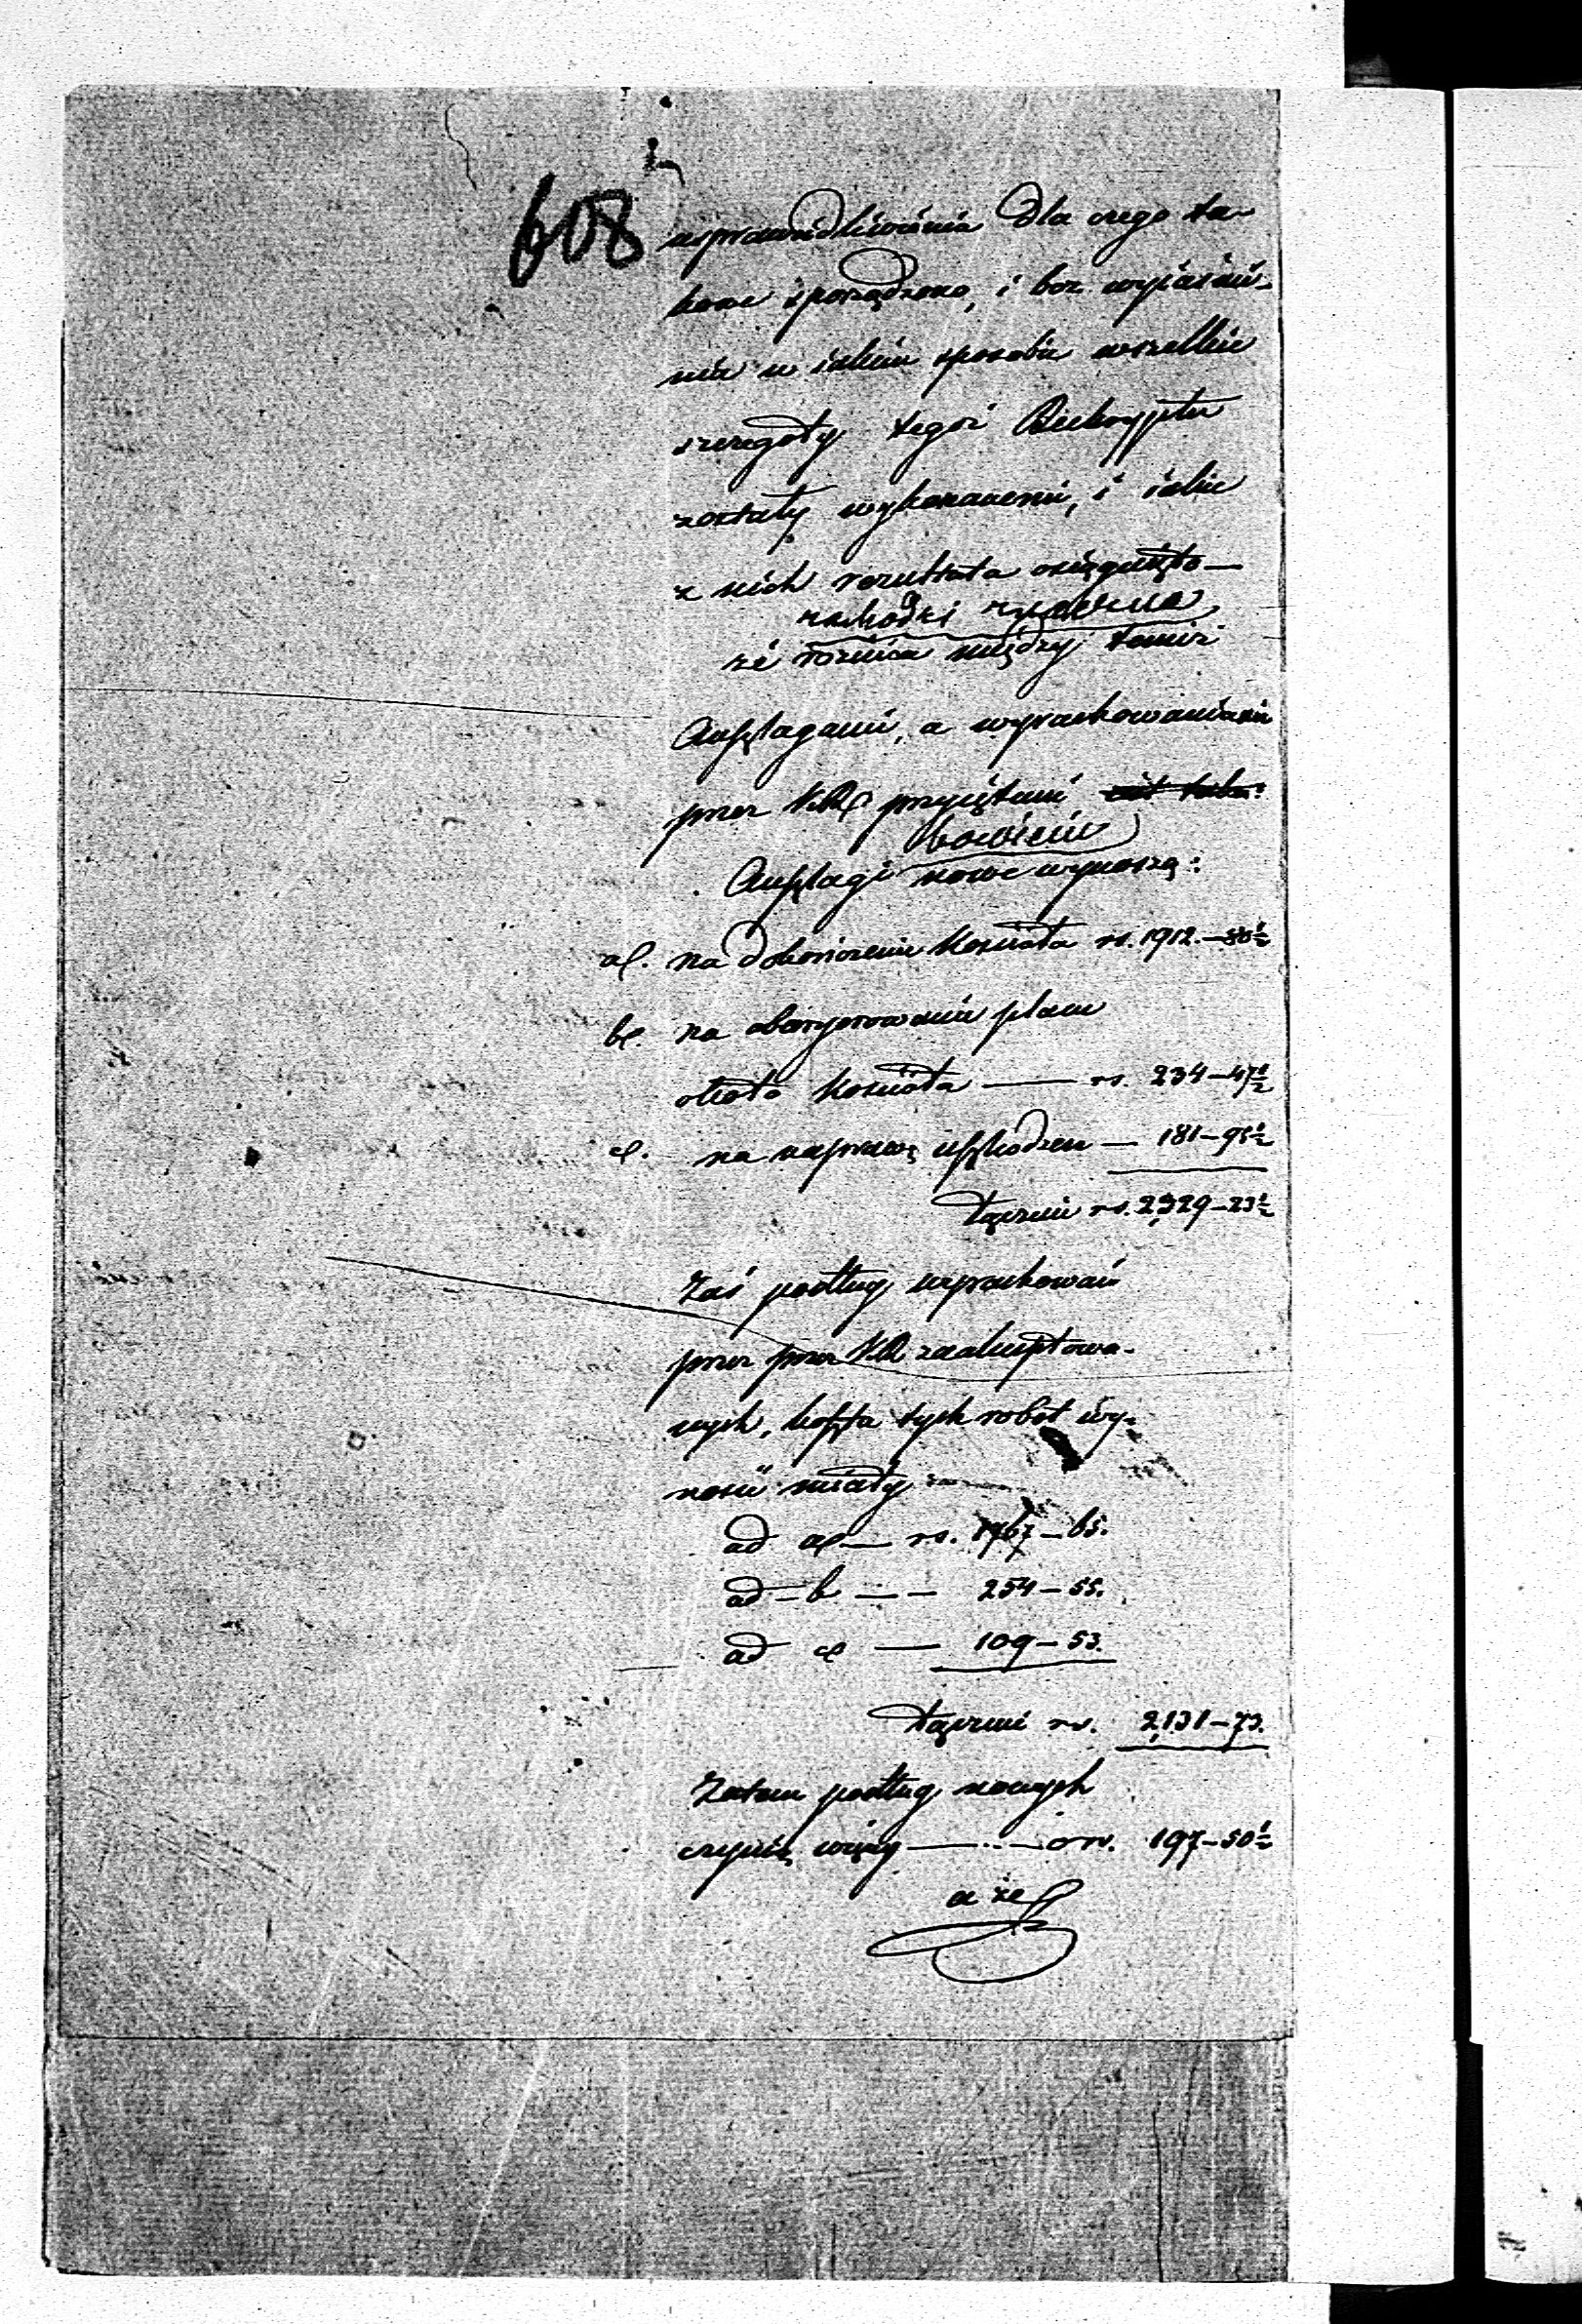 608
usprawiedliwienia dla czego ta-
kowe sporządzono, i bez wyjaśnie-
nia w jakim sposobie wszelkie
szczegóły tegoż Reskryptu
zostały wykonanemi, i jakie
z nich rezultata osiągnięto —
zachodzi znaczna
że różnica między temiż
Anszlagami, a wyrachowaniami
przez K.R. przyjętemi
bowiem
Anszlagi nowe wynoszą:
a/. na dokończenie Kościoła rs. 1912.–80½
b/. na obaryerowanie placu
około Kościoła — rs. 234–47½
c/. na naprawę uszkodzeń — 181–95½
łącznie rs. 2,329–23½
Zaś podług wyrachowań
przez przez K.R. zaakceptowa-
nych, koszta tych robót wy-
nosić miały
ad a/— rs. 1767–65.
ad – b — — 254–55.
ad c/ — 109–53.
łącznie rs. 2,131–73.
Zatem podług nowych
czynię więcej — rs. 197–50½
a że